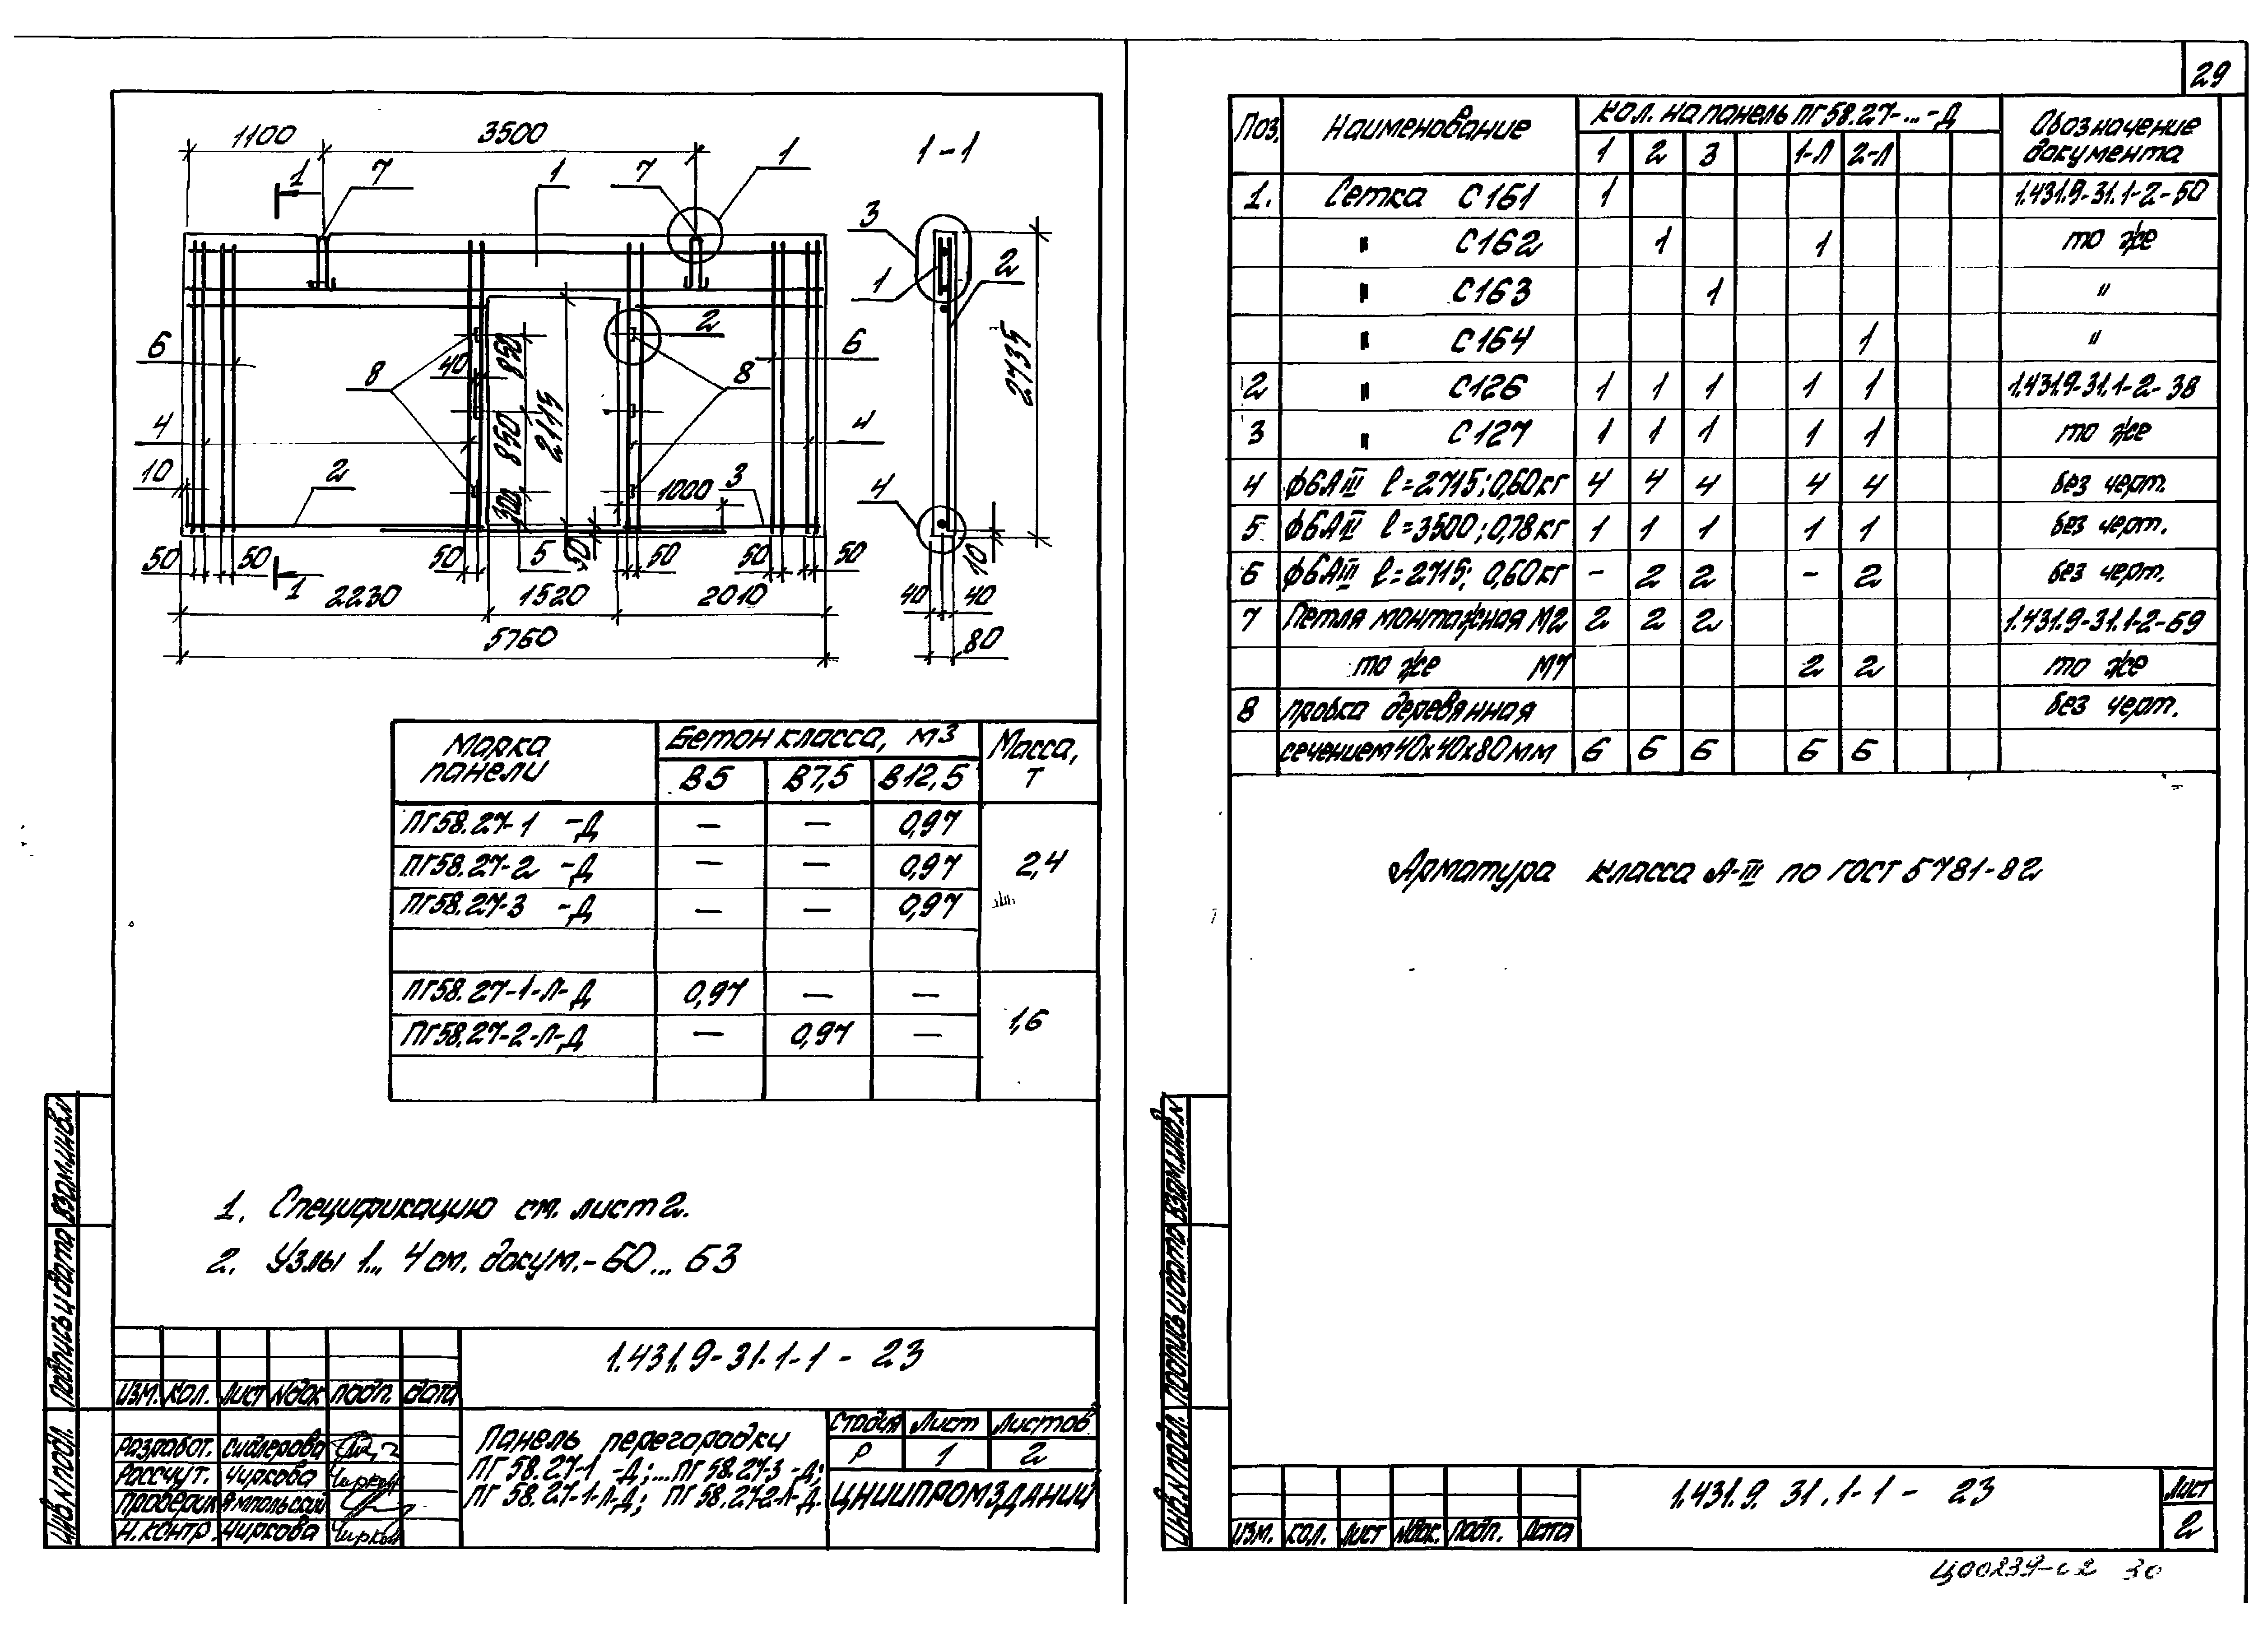 29
1100 3500
1-1
1 7 1 7 1
3
1
2
2735
6 8 40 850 2 8 6
2115
4 850 4
10 2 300 1000 3 4
50 50 50 5 30 50 50 50 10
1
2230 1520 2010 40 40
5760 80
Марка панели Бетон класса, м3 Масса, т
В5 В7,5 В12,5
ПГ58.27-1 -Д — — 0,97
ПГ58.27-2 -Д — — 0,97 2,4
ПГ58.27-3 -Д — — 0,97
ПГ58.27-1-Л-Д 0,97 — —
1,6
ПГ58.27-2-Л-Д — 0,97 —
1. Спецификацию см. лист 2.
2. Узлы 1... 4 см. докум.-60...63
Инв.N подл. Подпись и дата Взам.инв.N
1.431.9-31.1-1 - 23
Изм. Кол. Лист Nдок подп. дата
Разработ. Сидлерова
Рассчут. Чиркова
Проверил Ямпольский
Н.контр. Чиркова
Панель перегородки
ПГ 58.27-1 -Д;...ПГ 58.27-3 -Д;
ПГ 58.27-1-Л-Д; ПГ 58.27-2-Л-Д.
Стадия Лист Листов
Р 1 2
ЦНИИПРОМЗДАНИЙ
Поз. Наименование Кол. на панель ПГ58.27-...-Д Обозначение документа
1 2 3 1-Л 2-Л
1. Сетка С161 1 1.431.9-31.1-2-50
" С162 1 1 то же
" С163 1 "
" С164 1 "
2 " С126 1 1 1 1 1 1.431.9-31.1-2-38
3 " С127 1 1 1 1 1 то же
4 ф6АIII ℓ=2715; 0,60кг 4 4 4 4 4 без черт.
5 ф6АIII ℓ=3500; 0,78кг 1 1 1 1 1 без черт.
6 ф6АIII ℓ=2715; 0,60кг - 2 2 - 2 без черт.
7 Петля монтажная М2 2 2 2 1.431.9-31.1-2-69
то же М7 2 2 то же
8 пробка деревянная без черт.
сечением 40х40х80мм 6 6 6 6 6
Арматура класса А-III по ГОСТ 5781-82
Инв.N подл. Подпись и дата Взам.инв.N
1.431.9 31.1-1 - 23
Лист
2
Изм. Кол. Лист Nдок. Подп. Дата
Ц00239-02 30